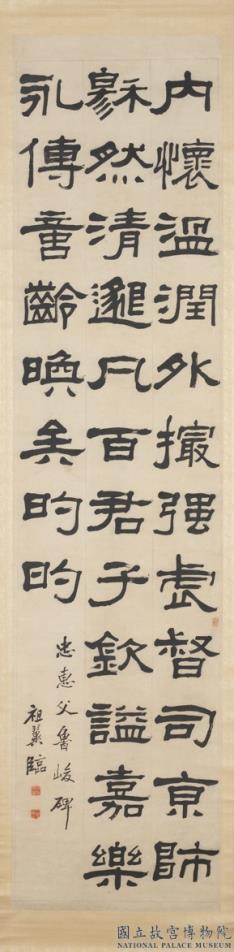 内懷溫潤外撮强虐督司京師
穆然清邈凡百君子欽謚嘉樂
永傳啻齡㬇矣旳旳
忠惠父魯峻碑
祖翼臨
國立故宮博物院
NATIONAL PALACE MUSEUM